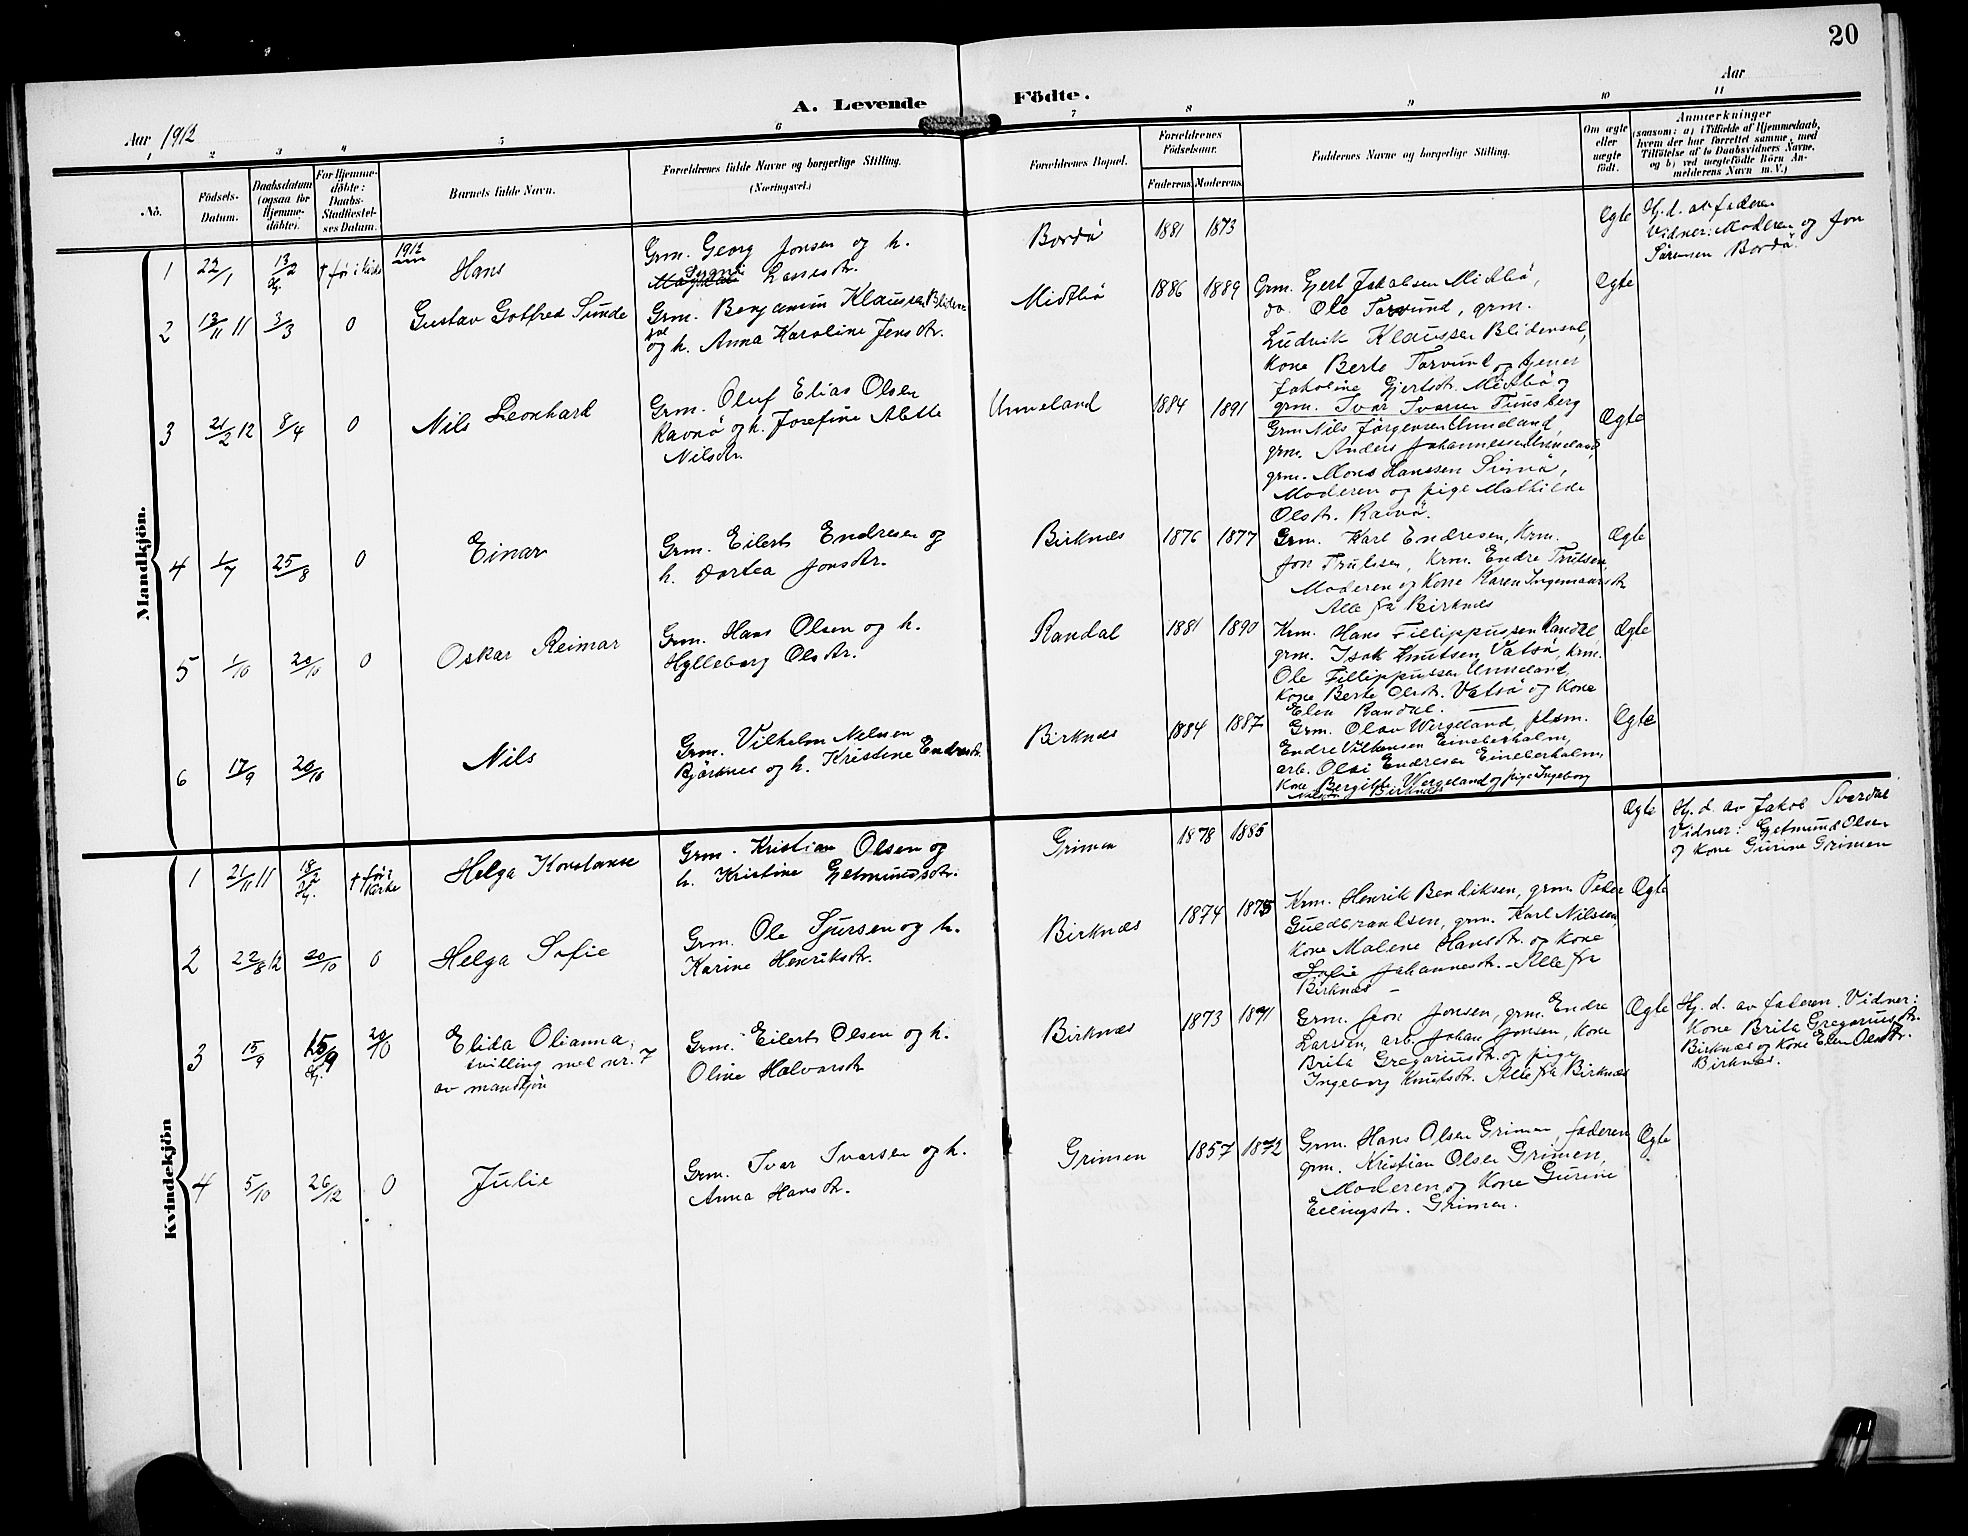 20
A. Levende Födte.
Aar 1912
Aar
1 2 3 4 5 6 7 8 9 10 11
No.
Födsels-Datum.
Daabsdatum (ogsaa for Hjemme-döbte).
For Hjemme-döbte: Daabs-Stadfæstel-ses Datum.
Barnets fulde Navn.
Forældrenes fulde Navne og borgerlige Stilling. (Næringsvei.)
Forældrenes Bopæl.
Forældrenes Födselsaar.
Faderens. Moderens.
Faddernes Navne og borgerlige Stilling.
Om ægte eller uægte födt.
Anmærkninger (saasom: a) i Tilfælde af Hjemmedaab, hvem der har forrettet samme, med Tilföielse af to Daabsvidners Navne, og b) ved uægtefödte Börn An-melderens Navn m. V.)
Mandkjön.
1912
1 22/1 13/2 Hj. † før i kirk Hans
Grm. Georg Jonsen og h.
Lassesdtr.
Bordö 1881 1873 Ægte
Hj. d. av faderen
Vidner: Moderen og Jon
Sørensen Bordö.
2 13/11 11 3/3 0 Gustav Gotfred Sunde
Grm. Benjamin Klaussen Bliden
sol
og h. Anna Karoline Jensdtr.
Midtbö 1886 1889
Grm. Gjert Jakobsen Midtbö,
do. Ole Torvund, grm.
Ludvik Klaussen Blidensol,
Kone Berte Torvund og tjener
Jakoline Gjertsdtr. Midtbö og
grm. Ivar Ivarsen Tunsberg
Ægte
3 21/2 12 8/4 0 Nils Leonhard
Grm. Oluf Elias Olsen
Ravnö og h. Josefine Alette
Nilsdtr.
Unneland 1884 1891
Grm Nils Jörgensen Unneland,
grm. Anders Johannessen Unneland
grm. Mons Hanssen
Moderen og pige Mathilde
Olsdtr. Ravnö.
Ægte
4 1/7 25/8 0 Einar
Grm. Eilert Endresen og
h. Dortea Jonsdtr.
Birknes 1876 1877
Grm. Karl Endresen, Krm.
Jon Trulssen, Krm. Endre Trulsen,
Moderen og Kone Karen Ingemarsdtr
Alle fra Birknes
Ægte
5 1/10 20/10 0 Oskar Reimar
Grm. Hans Olsen og h.
Hylleborg Olsdtr.
Randal 1881 1890
Krm. Hans Fillippussen Randal,
grm. Isak Knutsen Vatsö, krm.
Ole Fillippussen Unneland,
Kone Berte Olsdtr. Vatsö og Kone
Elen Randal.
Ægte
6 17/9 20/10 Nils
Grm. Vilhelm Nilsen
Björknes og h. Kristene Endresdtr.
Birknes 1884 1887
Grm. Olav Wergeland, plsm.
Endre Vilhemsen Eineberholm,
arb. Olai Endresen Eineberholm,
Kone Bergitte Wergeland og pige Ingeborg
Nilsen Birknes
Ægte
Kvindekjön
1 21/11 11 18/2 Hj. † før i Kirke Helga Konstanse
Grm. Kristian Olsen og
h. Kristine Getmundsdtr.
Grimen 1878 1885 Ægte
Hj. d. av Jakob Sverdal
Vidner: Getmund Olsen
og Kone Gurine Grimen
2 22/8 12 20/10 0 Helga Sofie
Grm. Ole Sjursen og h.
Karine Henriksdtr.
Birknes 1874 1875
Krm. Henrik Bendiksen, grm Peder
Guedbrandsen, grm. Karl Nilssen,
Kone Malene Hansdtr. og Kone
Sofie Johannesdtr. - Alle fra
Birknes
Ægte
3 15/9 15/9 Hj. 20/10 Elida Olianna,
tvilling med nr. 7
av mandkjön
Grm. Eilert Olsen og h.
Oline Halvorsdtr
Birknes 1873 1871
Grm. Jon Jonsen, grm. Endre
Larssen, arb. Johan Jonsen, Kone
Brita Gregoriusdtr. og pige
Ingeborg Knutsdtr. Alle fra Birknes
Ægte
Hj. d. av faderen. Vidner:
Kone Brita Gregoriusdtr.
Birknes og Kone Elen Olsdtr.
Birknes.
4 5/10 26/12 0 Julie
Grm. Ivar Ivarsen og h.
Anna Hansdtr.
Grimen 1857 1872
Grm. Hans Olsen Grimen, faderen
grm. Kristian Olsen Grimen,
Moderen og Kone Gurine
Ellingsdtr. Grimen.
Ægte